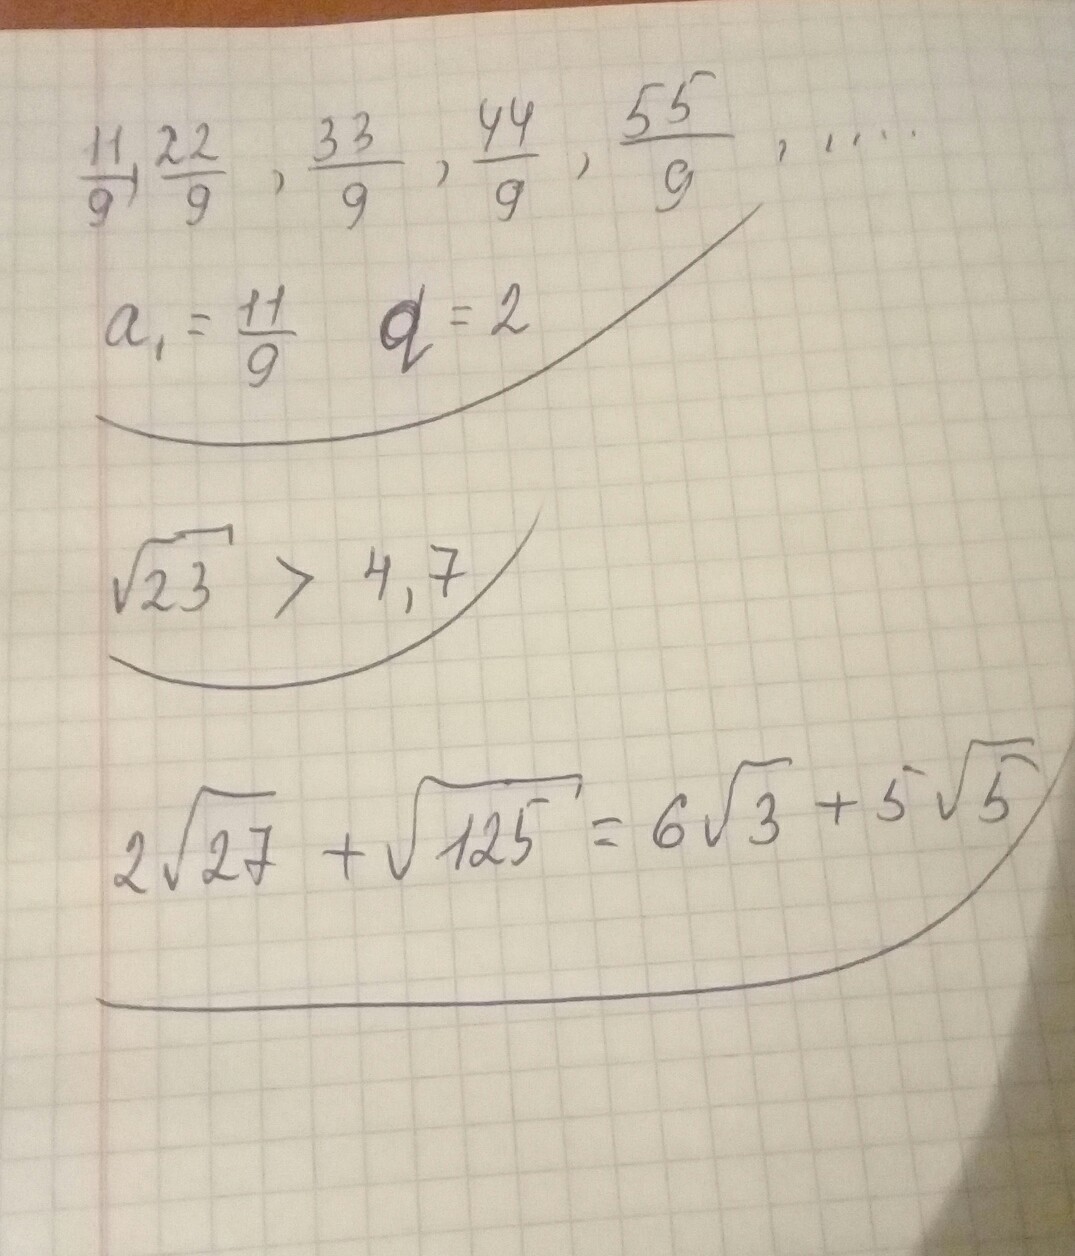 11/9, 22/9, 33/9, 44/9, 55/9, ....
a₁ = 11/9 q = 2
√23 > 4,7
2√27 + √125 = 6√3 + 5√5